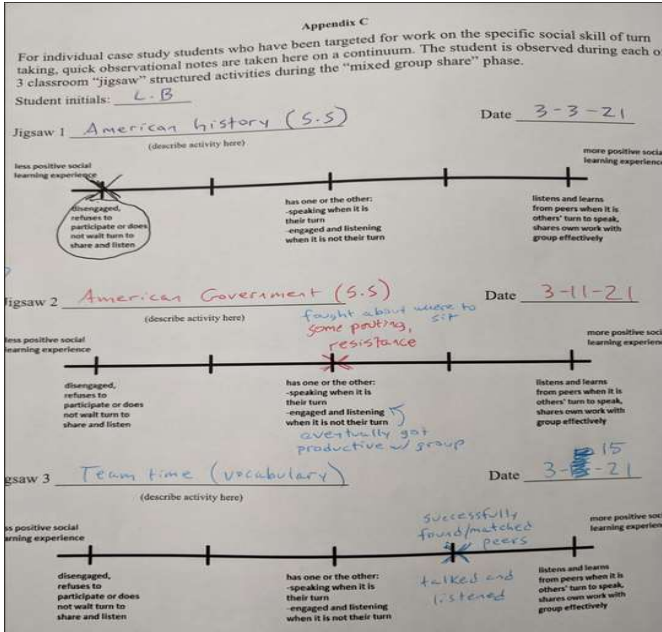 Appendix C
For individual case study students who have been targeted for work on the specific social skill of turn
taking, quick observational notes are taken here on a continuum. The student is observed during each o
3 classroom "jigsaw" structured activities during the "mixed group share" phase.
Student initials: L.B
Jigsaw 1 American history (S.S) Date 3-3-21
(describe activity here)
less positive social
learning experience
more positive socia
learning experience
disengaged,
refuses to
participate or does
not wait turn to
share and listen
has one or the other:
-speaking when it is
their turn
-engaged and listening
when it is not their turn
listens and learns
from peers when it is
others' turn to speak,
shares own work with
group effectively
Jigsaw 2 American Government (S.S) Date 3-11-21
(describe activity here)
fought about where to
sit
some pouting,
resistance
less positive social
learning experience
more positive soci
learning experien
disengaged,
refuses to
participate or does
not wait turn to
share and listen
has one or the other:
-speaking when it is
their turn
-engaged and listening
when it is not their turn
aventually got
productive w/ group
listens and learns
from peers when it is
others' turn to speak,
shares own work with
group effectively
gsaw 3 Team time (vocabulary) Date 3-15-21
(describe activity here)
successfully
found/matched
peers
ss positive social
arning experience
more positive soc
learning experien
disengaged,
refuses to
participate or does
not wait turn to
share and listen
has one or the other:
-speaking when it is
their turn
-engaged and listening
when it is not their turn
talked and
listened
listens and learns
from peers when it is
others' turn to speak,
shares own work with
group effectively